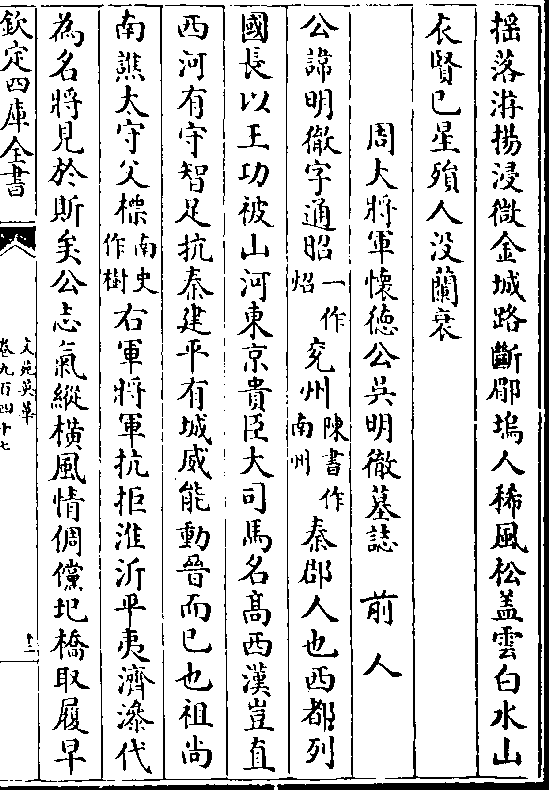 揺落游揚浸微金城路斷郿塢人稀風松蓋雲白水山
衣賢已星殞人没蘭衰
周大將軍懷德公吳明徹墓誌　前人
公諱明徹字通昭一作炤兖州陳書作南州秦郡人也西都列
國長以王功被山河東京貴臣大司馬名髙西漢豈直
西河有守智足抗秦建平有城威能動晉而已也祖尚
南譙大守父標南史作樹右軍將軍抗拒淮沂平夷濟漯代
為名將見於斯矣公志氣縱横風情倜儻圯橋取履早
欽定四庫全書
文苑英華
卷九百四十七
十二